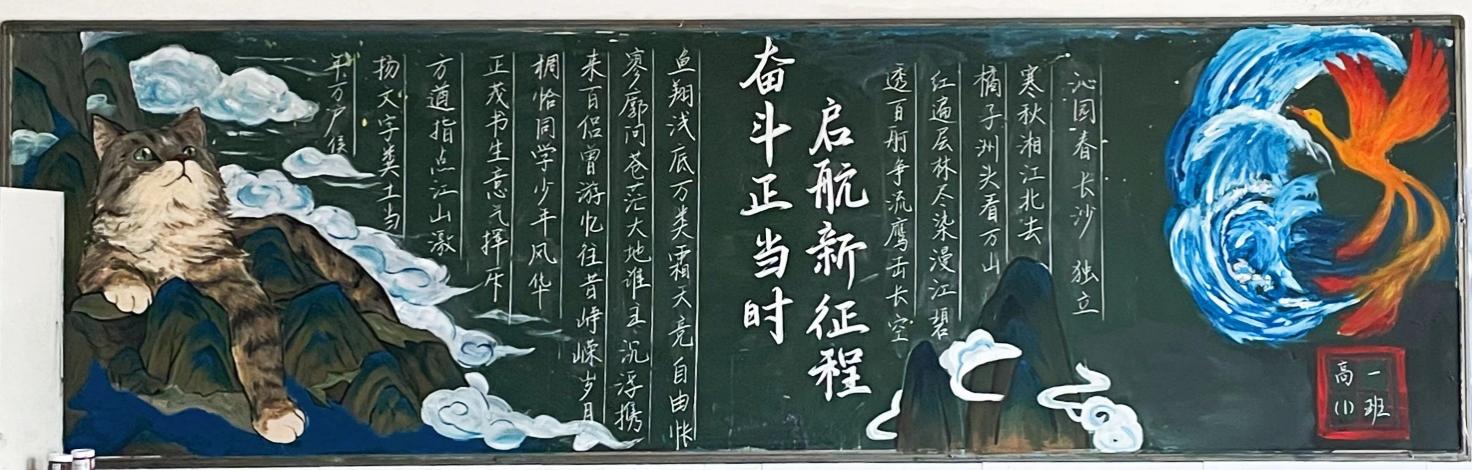 沁园春长沙 独立
寒秋湘江北去
橘子洲头看万山
红遍层林尽染漫江碧
透百舸争流鹰击长空
启航新征程
奋斗正当时
鱼翔浅底万类霜天竞自由怅
寥廓问苍茫大地谁主沉浮携
来百侣曾游忆往昔峥嵘岁月
稠恰同学少年风华
正茂书生意气挥斥
方遒指点江山激
扬文字粪土当
年万户侯
高一
(1)班